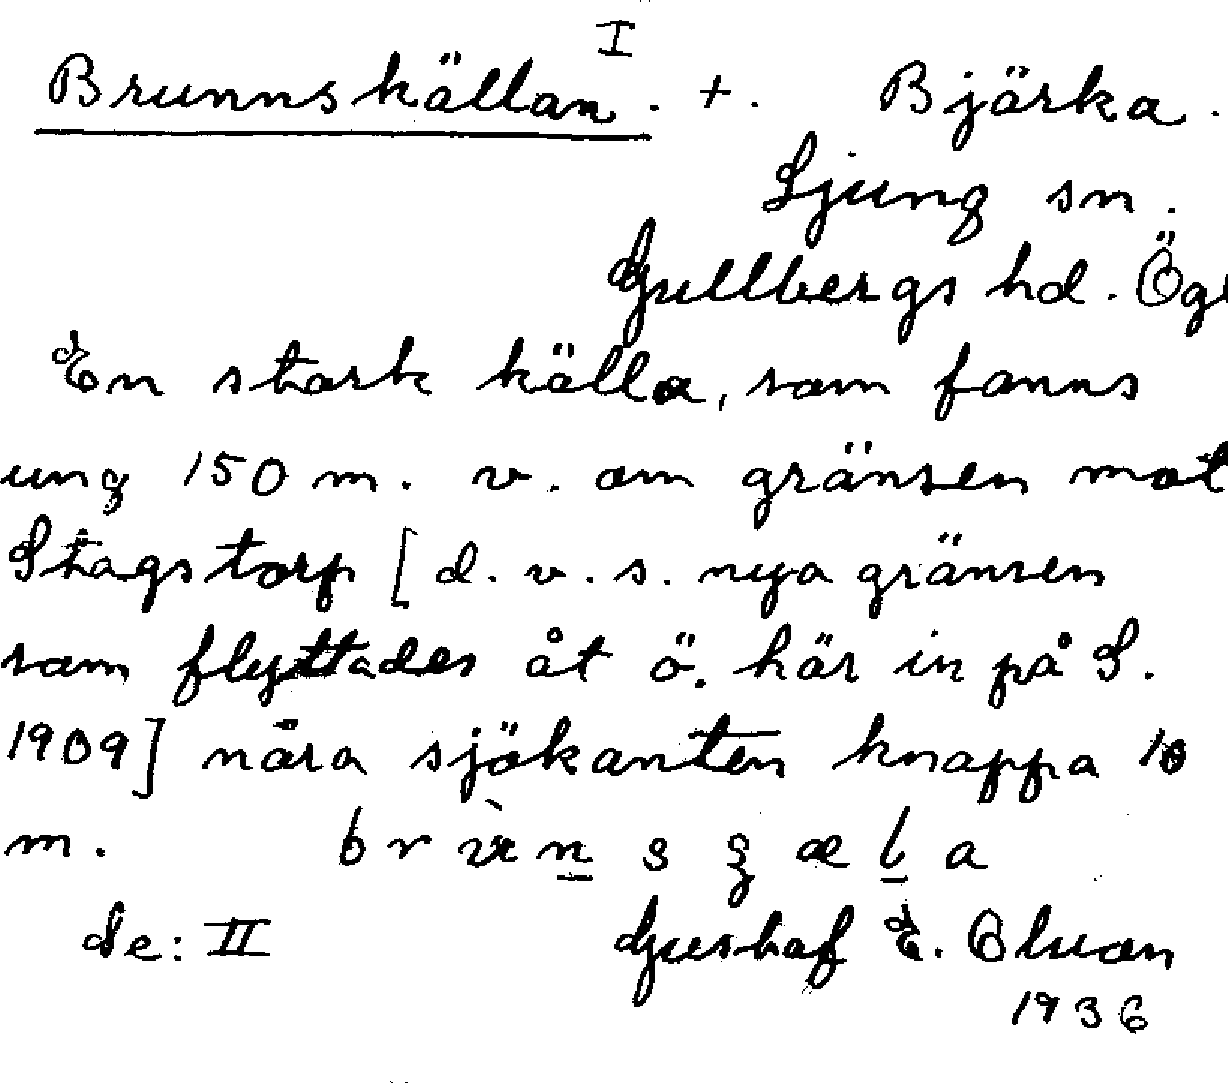 I
Brunnskällan. +. Bjärka.
Ljung sn.
Gullbergs hd. Ögl
En stark källa, som fanns
ung 150 m. v. om gränsen mot
Stagstorp [d. v. s. nya gränsen
som flyttades åt ö. här in på S.
1909] nära sjökanten knappa 10
m.
Se: II Gustaf E. Olson
1936